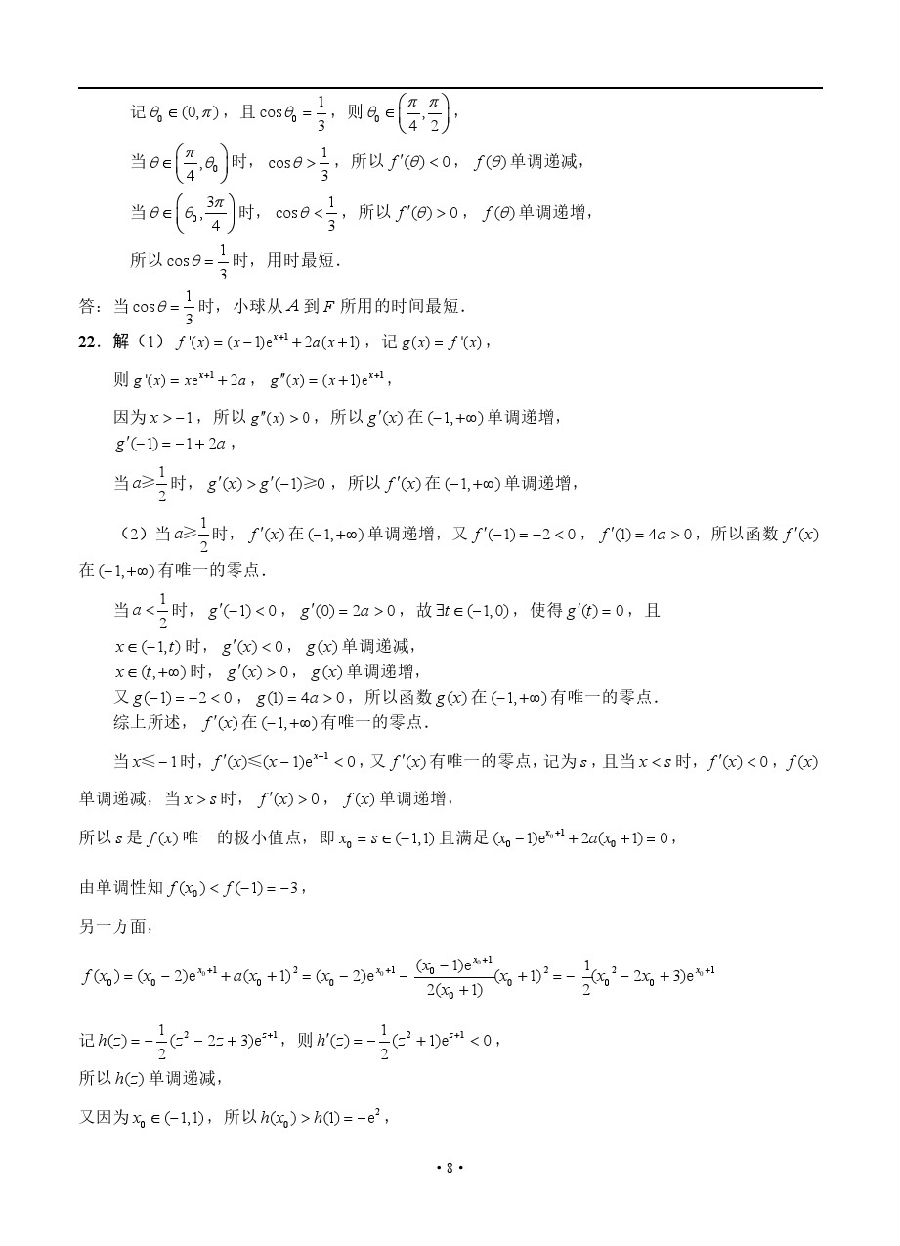 记θ₀∈(0,π)，且cosθ₀=1/3，则θ₀∈(π/4,π/2)，
当θ∈(π/4,θ₀)时，cosθ>1/3，所以f′(θ)<0，f(θ)单调递减，
当θ∈(θ₀,3π/4)时，cosθ<1/3，所以f′(θ)>0，f(θ)单调递增，
所以cosθ=1/3时，用时最短．
答：当cosθ=1/3时，小球从A到F所用的时间最短．
22．解（1）f′(x)=(x−1)e^(x+1)+2a(x+1)，记g(x)=f′(x)，
则g′(x)=xe^(x+1)+2a，g″(x)=(x+1)e^(x+1)，
因为x>−1，所以g″(x)>0，所以g′(x)在(−1,+∞)单调递增，
g′(−1)=−1+2a，
当a≥1/2时，g′(x)>g′(−1)≥0，所以f′(x)在(−1,+∞)单调递增，
（2）当a≥1/2时，f′(x)在(−1,+∞)单调递增，又f′(−1)=−2<0，f′(1)=4a>0，所以函数f′(x)
在(−1,+∞)有唯一的零点．
当a<1/2时，g′(−1)<0，g′(0)=2a>0，故∃t∈(−1,0)，使得g′(t)=0，且
x∈(−1,t)时，g′(x)<0，g(x)单调递减，
x∈(t,+∞)时，g′(x)>0，g(x)单调递增，
又g(−1)=−2<0，g(1)=4a>0，所以函数g(x)在(−1,+∞)有唯一的零点．
综上所述，f′(x)在(−1,+∞)有唯一的零点．
当x≤−1时，f′(x)≤(x−1)e^(x−1)<0，又f′(x)有唯一的零点，记为s，且当x<s时，f′(x)<0，f(x)
单调递减；当x>s时，f′(x)>0，f(x)单调递增．
所以s是f(x)唯 的极小值点，即x₀=s∈(−1,1)且满足(x₀−1)e^(x₀+1)+2a(x₀+1)=0，
由单调性知f(x₀)<f(−1)=−3，
另一方面：
f(x₀)=(x₀−2)e^(x₀+1)+a(x₀+1)²=(x₀−2)e^(x₀+1)−((x₀−1)e^(x₀+1))/(2(x₀+1))(x₀+1)²=−1/2(x₀²−2x₀+3)e^(x₀+1)
记h(z)=−1/2(z²−2z+3)e^(z+1)，则h′(z)=−1/2(z²+1)e^(z+1)<0，
所以h(z)单调递减，
又因为x₀∈(−1,1)，所以h(x₀)>h(1)=−e²，
·8·